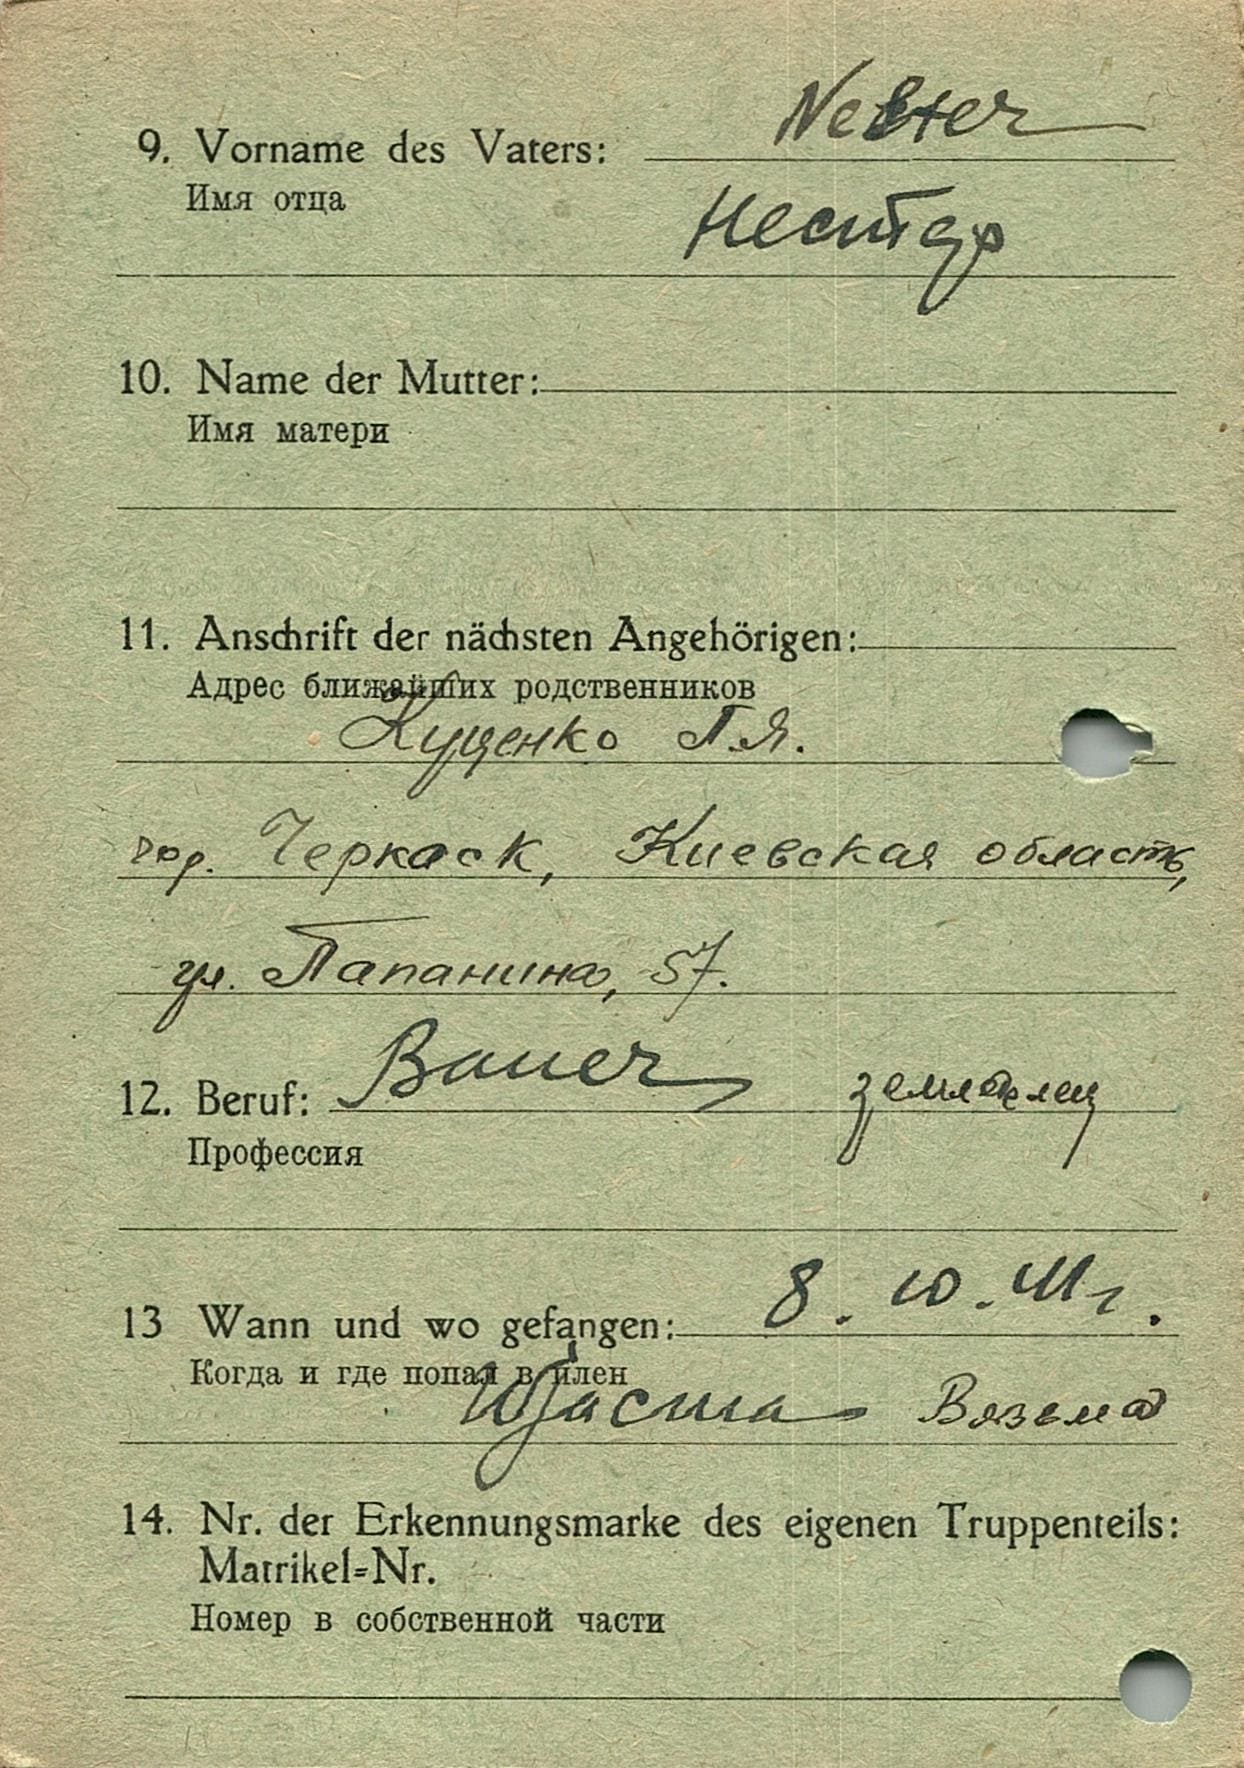 9. Vorname des Vaters: Nester
Имя отца
Нестер
10. Name der Mutter:
Имя матери
11. Anschrift der nächsten Angehörigen:
Адрес ближайших родственников
Куценко П.Я.
гор. Черкасск, Киевская область,
ул. Папанина, 57.
12. Beruf: Bauer земледелец
Профессия
13 Wann und wo gefangen: 8. 10. 41 г.
Когда и где попал в плен
Вязьма
14. Nr. der Erkennungsmarke des eigenen Truppenteils:
Matrikel=Nr.
Номер в собственной части